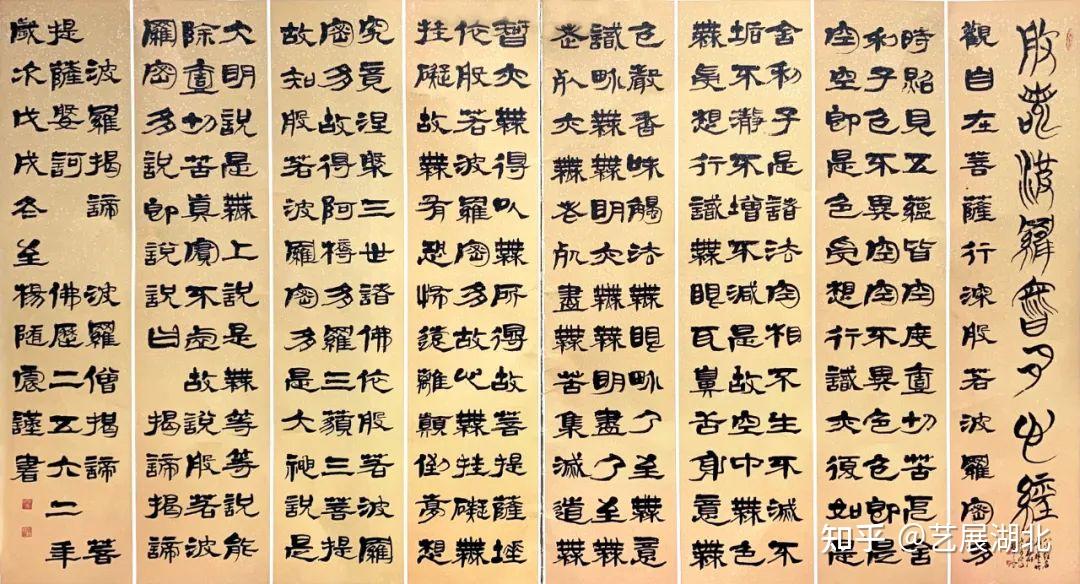 般若波羅密多心經
觀自在菩薩行深般若波羅密多
時照見五蘊皆空度壹切苦厄舍
利子色不異空空不異色色即是
空空即是色受想行識亦復如是
舍利子是諸法空相不生不滅不
垢不淨不增不減是故空中無色
無受想行識無眼耳鼻舌身意無
色聲香味觸法無眼界乃至無意
識界無無明亦無無明盡乃至無
老死亦無老死盡無苦集滅道無
智亦無得以無所得故菩提薩埵
依般若波羅密多故心無挂礙無
挂礙故無有恐怖遠離顛倒夢想
究竟涅槃三世諸佛依般若波羅
密多故得阿耨多羅三藐三菩提
故知般若波羅密多是大神說是
大明說是無上說是無等等說能
除壹切苦真實不虛故說般若波
羅密多說即說說曰 揭諦揭諦
波羅揭諦 波羅僧揭諦 菩
提薩婆訶 佛歷二五六二年
歲次戊戌冬至楊隨謹書
知乎 @艺展湖北